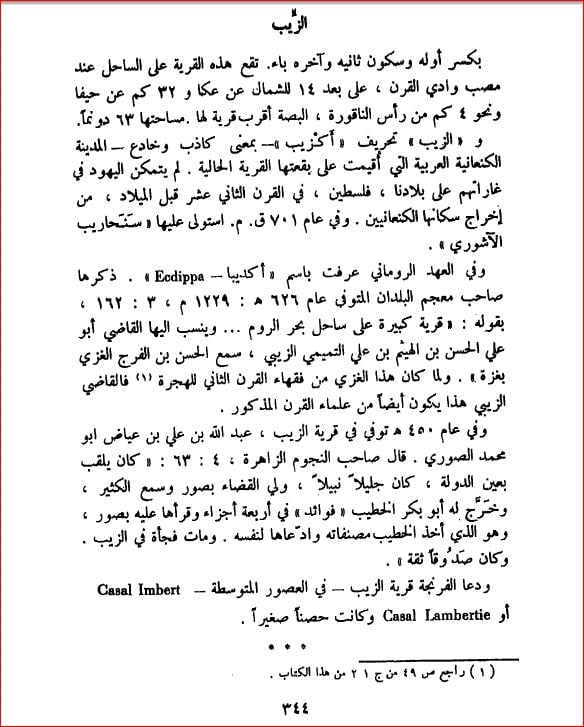 الزِّيب
بكسر أوله وسكون ثانيه وآخره باء. تقع هذه القرية على الساحل عند
مصب وادي القرن ، على بعد ١٤ للشمال عن عكا و ٣٢ كم عن حيفا
ونحو ٤ كم من رأس الناقورة ، البصة أقرب قرية لها .مساحتها ٦٣ دونماً.
و « الزيب » تحريف « أكْزيب »– بمعنى كاذب وخادع – المدينة
الكنعانية العربية التي أقيمت على بقعتها القرية الحالية . لم يتمكن اليهود في
غاراتهم على بلادنا ، فلسطين ، في القرن الثاني عشر قبل الميلاد ، من
إخراج سكانها الكنعانيين . وفي عام ٧٠١ ق. م. استولى عليها « سَنْحاريب
الآشوري » .
وفي العهد الروماني عرفت باسم « أكديبا – Ecdippa » . ذكرها
صاحب معجم البلدان المتوفي عام ٦٢٦ ه : ١٢٢٩ م ، ٣ : ١٦٢ ،
بقوله : « قرية كبيرة على ساحل بحر الروم ... وينسب اليها القاضي أبو
علي الحسن بن الهيثم بن علي التميمي الزيبي ، سمع الحسن بن الفرج الغزي
بغزة » . ولما كان هذا الغزي من فقهاء القرن الثاني للهجرة (١) فالقاضي
الزيبي هذا يكون أيضاً من علماء القرن المذكور .
وفي عام ٤٥٠ ه توفي في قرية الزيب ، عبد الله بن علي بن عياض ابو
محمد الصوري . قال صاحب النجوم الزاهرة ، ٤ : ٦٣ : « كان يلقب
بعين الدولة ، كان جليلاً نبيلاً ، ولي القضاء بصور وسمع الكثير ،
وخَرَّج له أبو بكر الخطيب « فوائد » في أربعة أجزاء وقرأها عليه بصور ،
وهو الذي أخذ الخطيب مصنفاته وادّعاها لنفسه . ومات فجأة في الزيب .
وكان صَدُوقاً ثقة » .
ودعا الفرنجة قرية الزيب – في العصور المتوسطة – Casal Imbert
أو Casal Lambertie وكانت حصناً صغيراً .
* * *
(١) راجع ص ٤٩ من ج ١ ٢ من هذا الكتاب .
٣٤٤